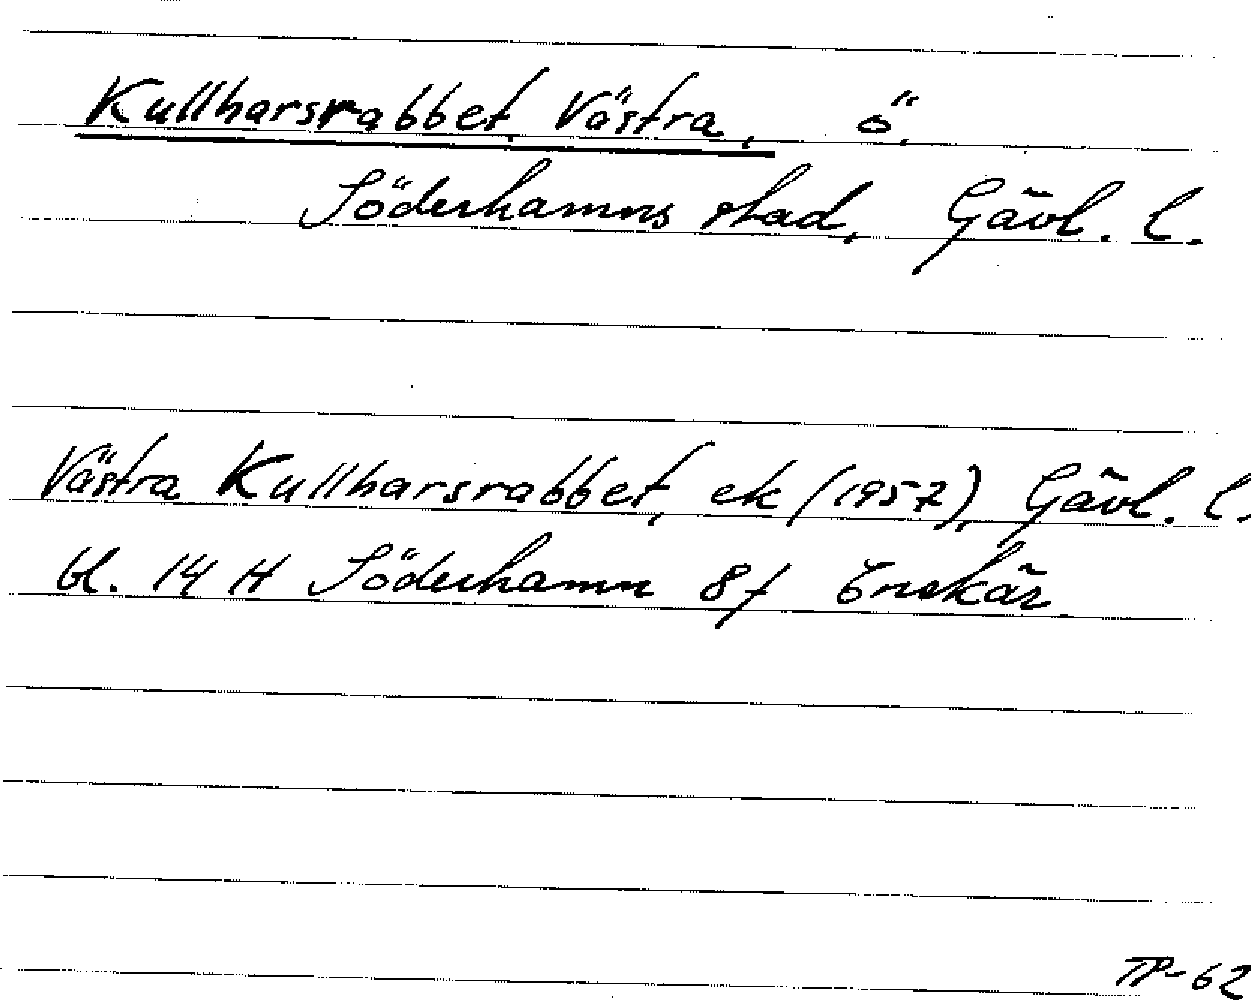 Kullharsrabbet, Västra, ö.
Söderhamns stad, Gävl. l.
Västra Kullharsrabbet, ek (1957), Gävl. l.
bl. 14 H Söderhamn 8f Enskär.
TP-62